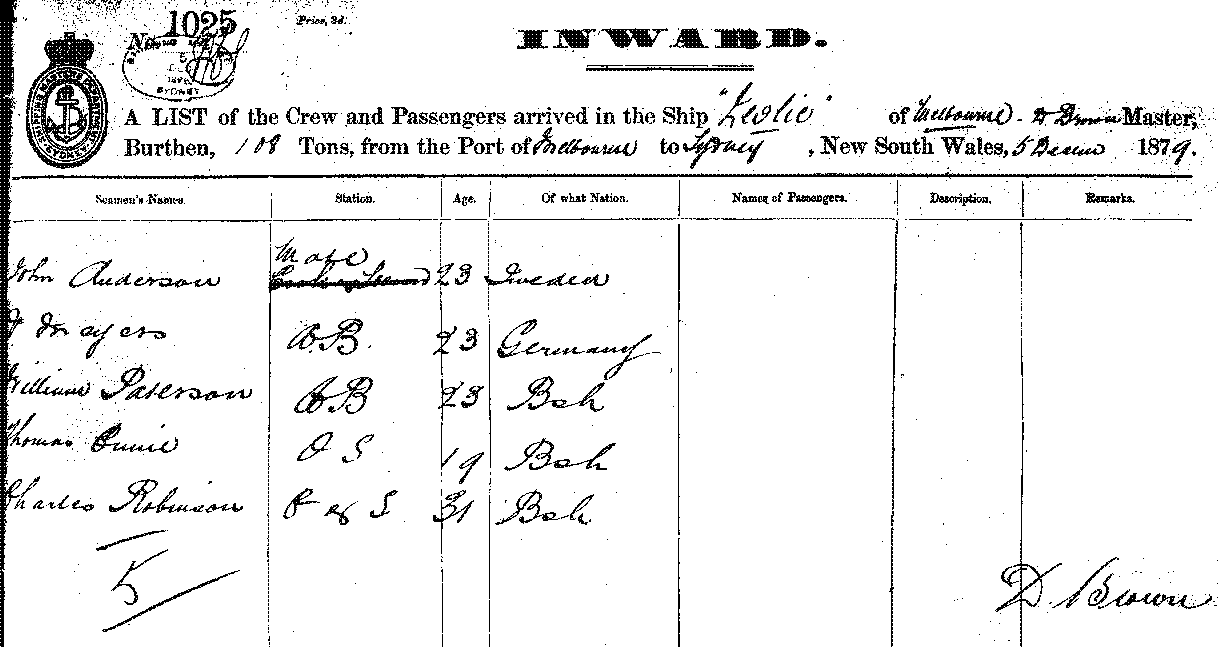 No 1025
Price, 3d.
SYDNEY
INWARD.
A LIST of the Crew and Passengers arrived in the Ship "Leslie" of Melbourne. D Brown Master,
Burthen, 108 Tons, from the Port of Melbourne to Sydney, New South Wales, 5 1879.
Seamen's Names. Station. Age. Of what Nation. Names of Passengers. Description. Remarks.
Mate
John Anderson 23 Sweden
Meyers A.B. 23 Germany
William Paterson AB 23 Bsh
Thomas O S 19 Bsh
Charles Robinson C & S 31 Bsh
5
D. Brown